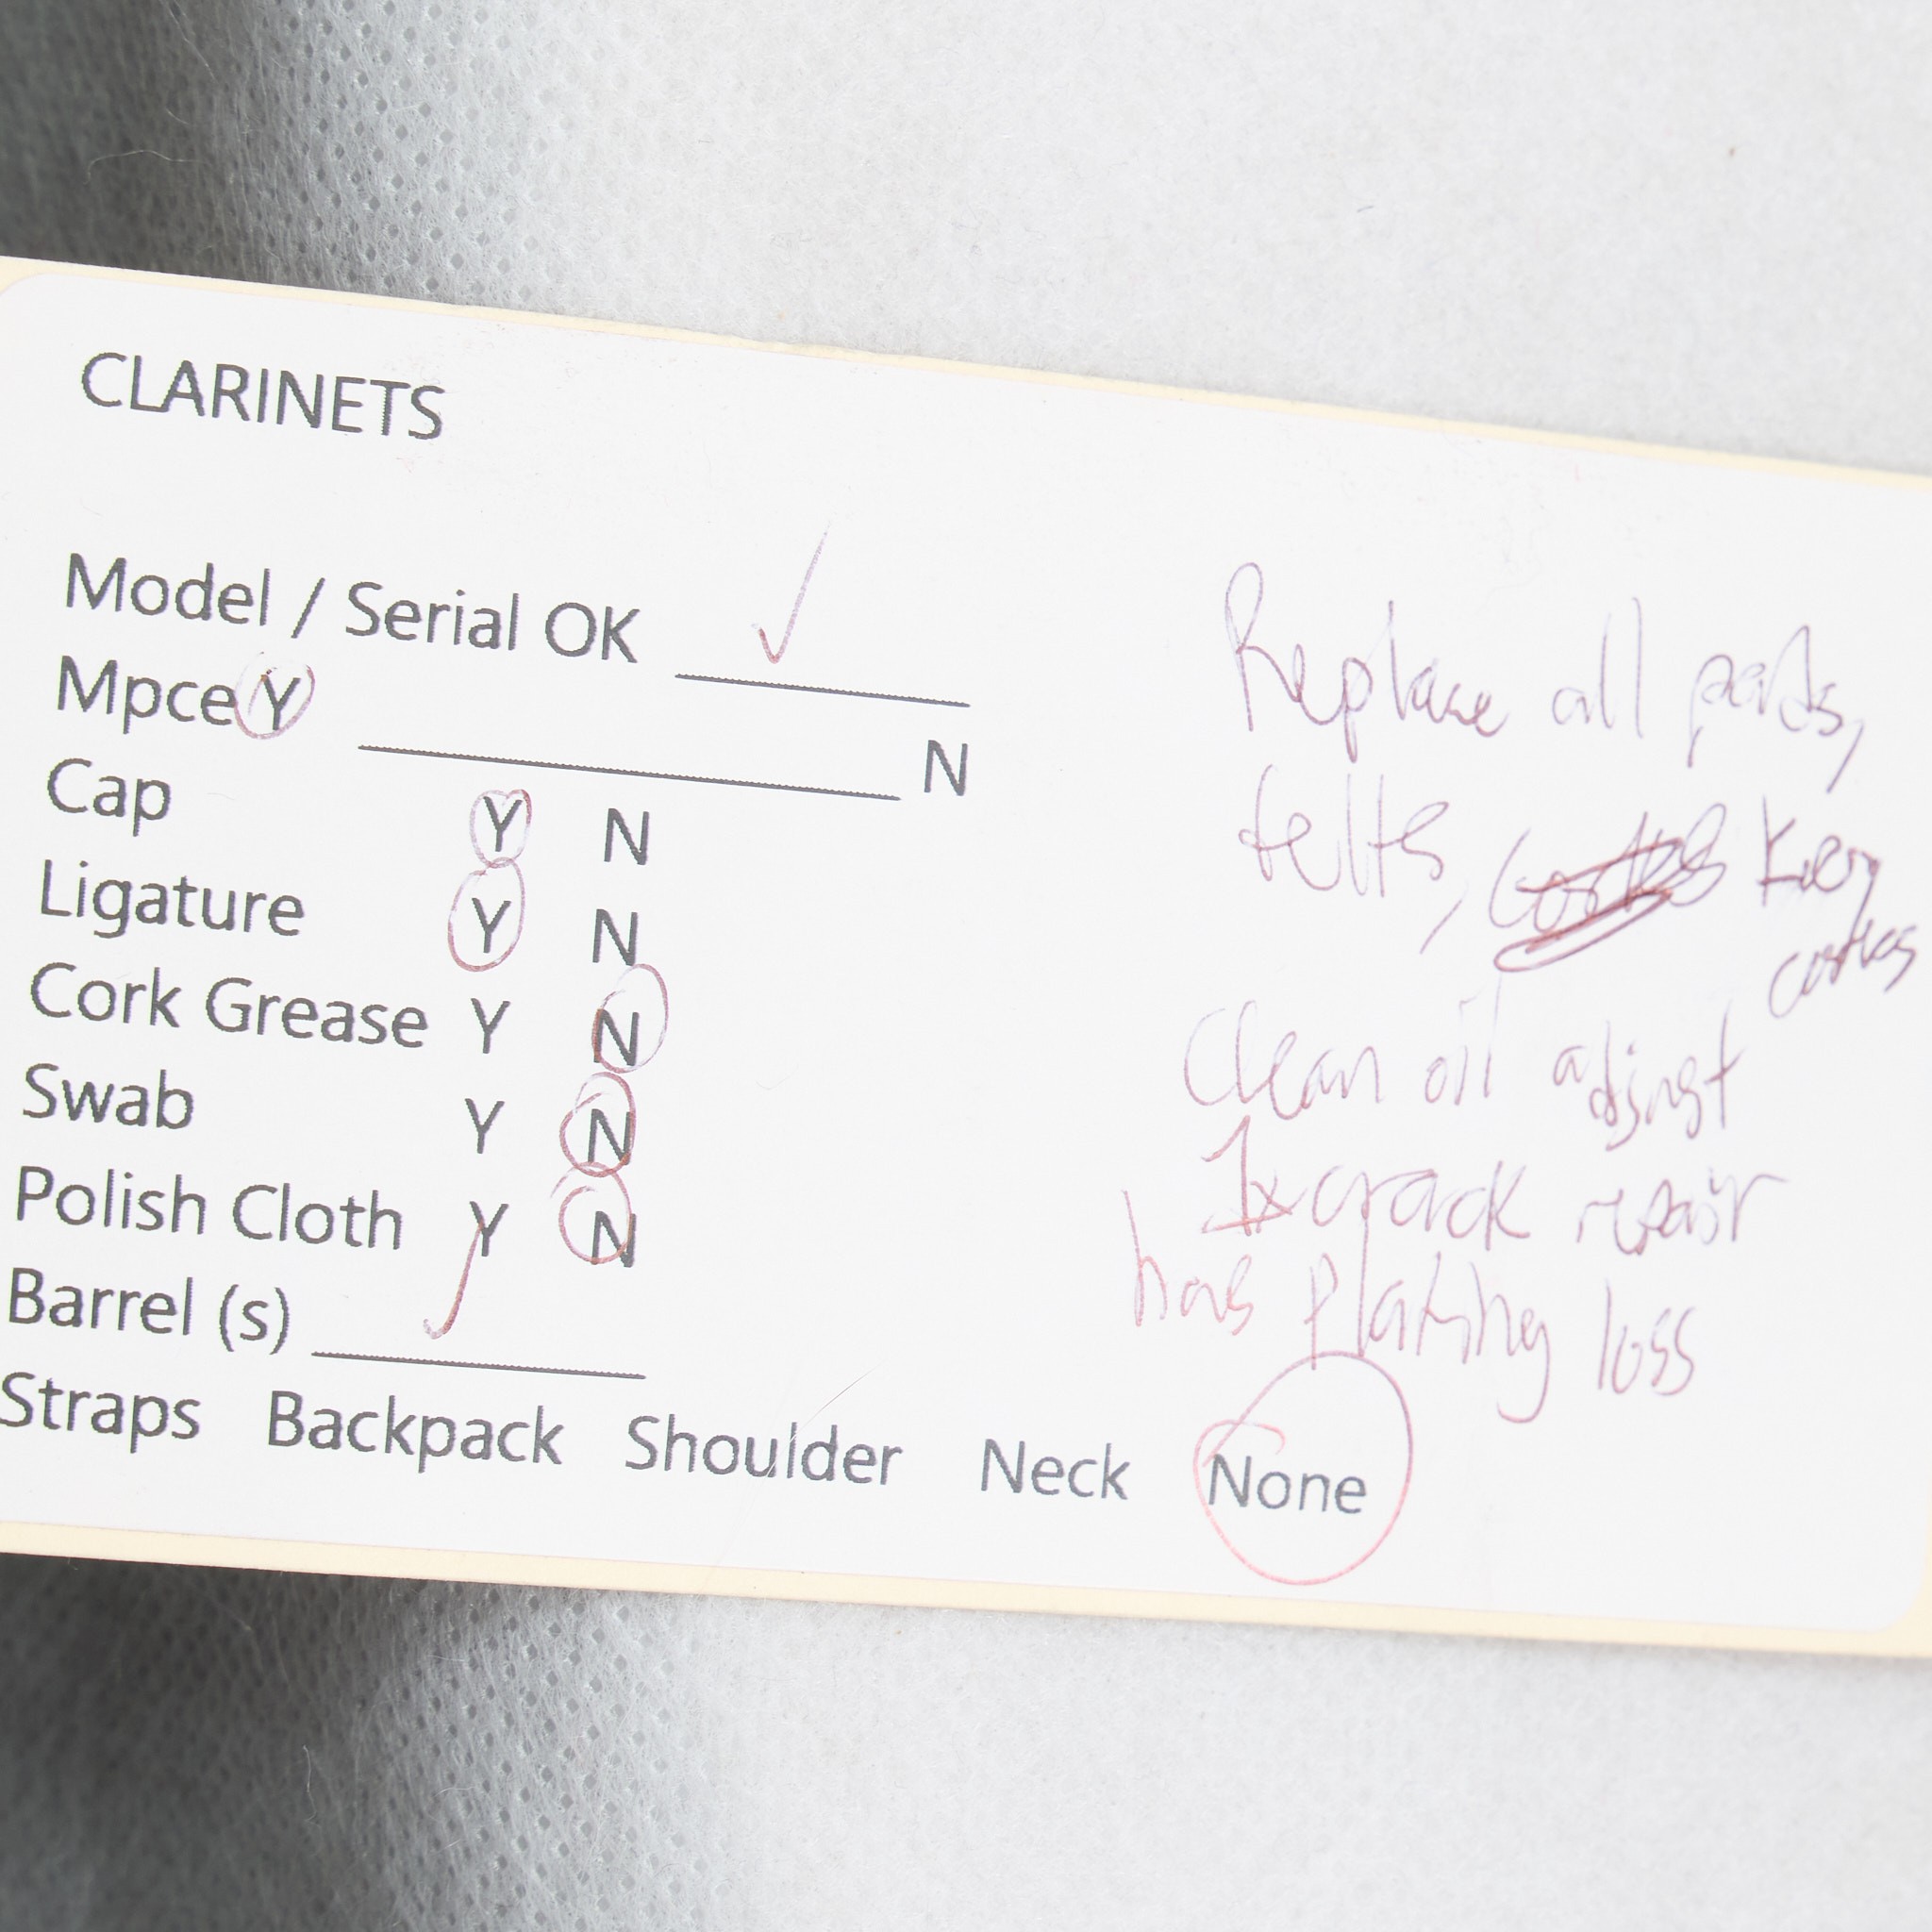 CLARINETS
Model / Serial OK ✓
Mpce Y N
Cap Y N
Ligature Y N
Cork Grease Y N
Swab Y N
Polish Cloth Y N
Barrel (s) ✓
Straps Backpack Shoulder Neck None
Replace all pads,
felts, corks key
corks
Clean oil adjust
1x crack repair
has plating loss